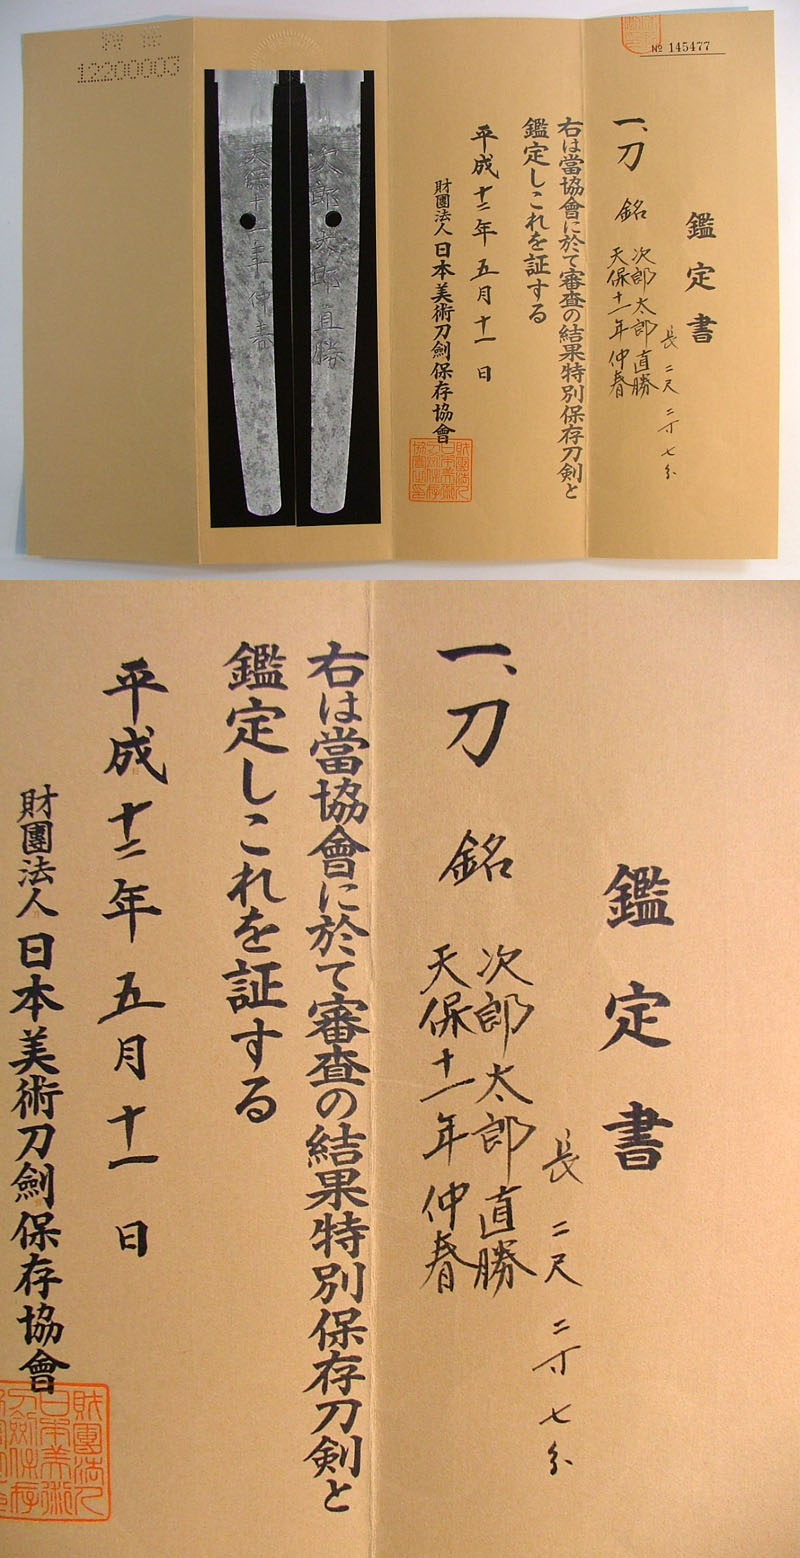 特保
12200003
№ 145477
鑑定書
一、刀 銘 次郎太郎直勝
天保十一年仲春
長二尺二寸七分
右は當協會に於て審査の結果特別保存刀剣と
鑑定しこれを証する
平成十二年五月十一日
財團法人日本美術刀劍保存協會
財團法人
日本美術
刀劍保存
協會之印
次郎太郎直勝
天保十一年仲春
鑑定書
一、刀 銘 次郎太郎直勝
天保十一年仲春
長二尺二寸七分
右は當協會に於て審査の結果特別保存刀剣と
鑑定しこれを証する
平成十二年五月十一日
財團法人日本美術刀劍保存協會
財團法人
日本美術
刀劍保存